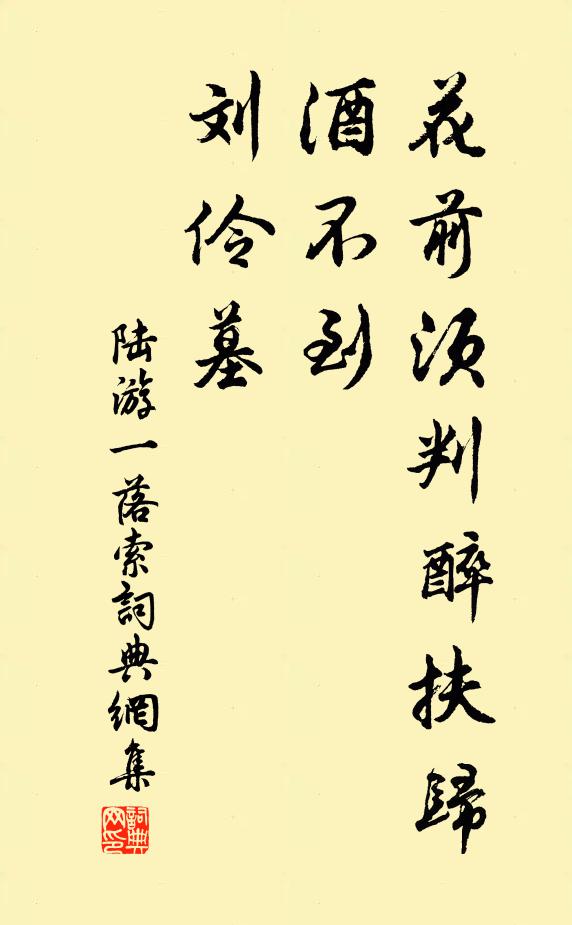 花前须判醉扶歸
酒不到
刘伶墓
陆游一落索詞典網集
詞典网印